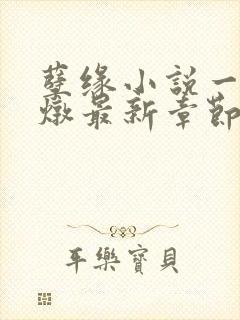 孽缘小說一
燉最新章節
平樂寶貝